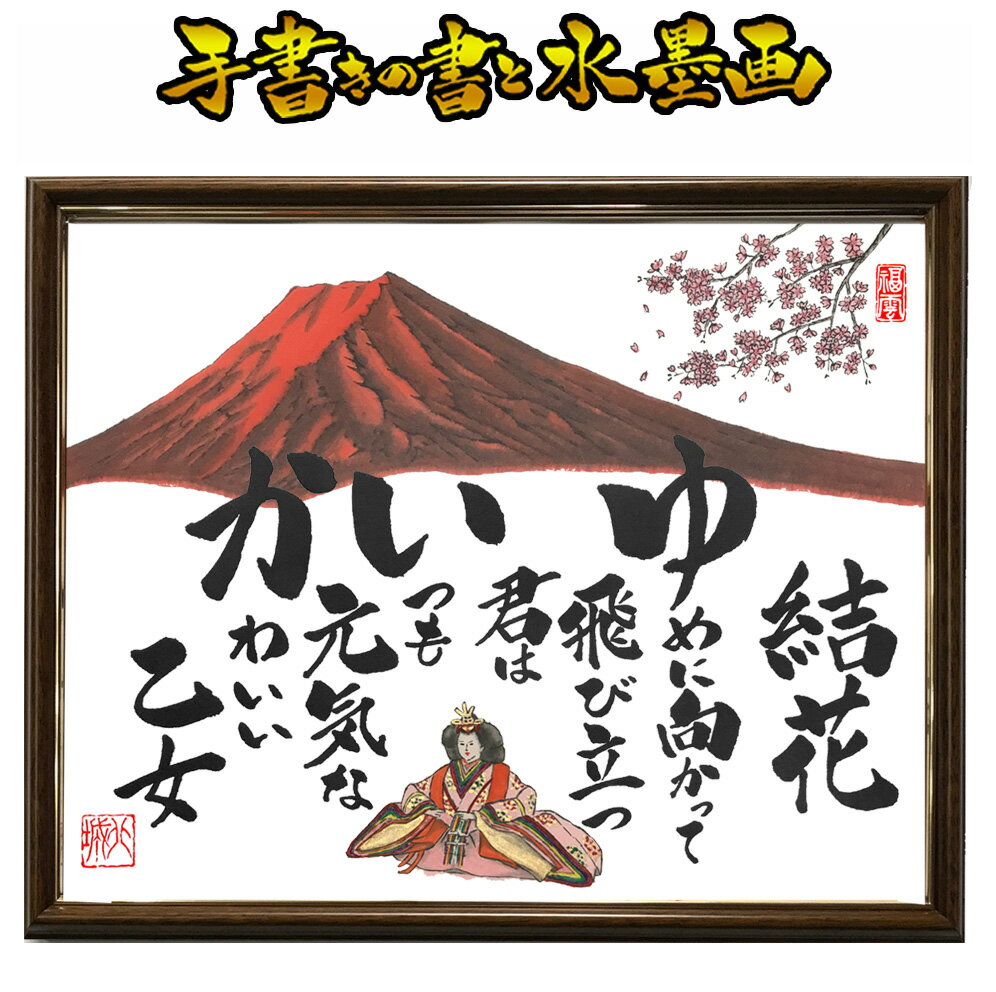 手書きの書と水墨画
福雲
結花
ゆめに向かって
飛び立つ
君は
いつも
元気な
かわいい
乙女